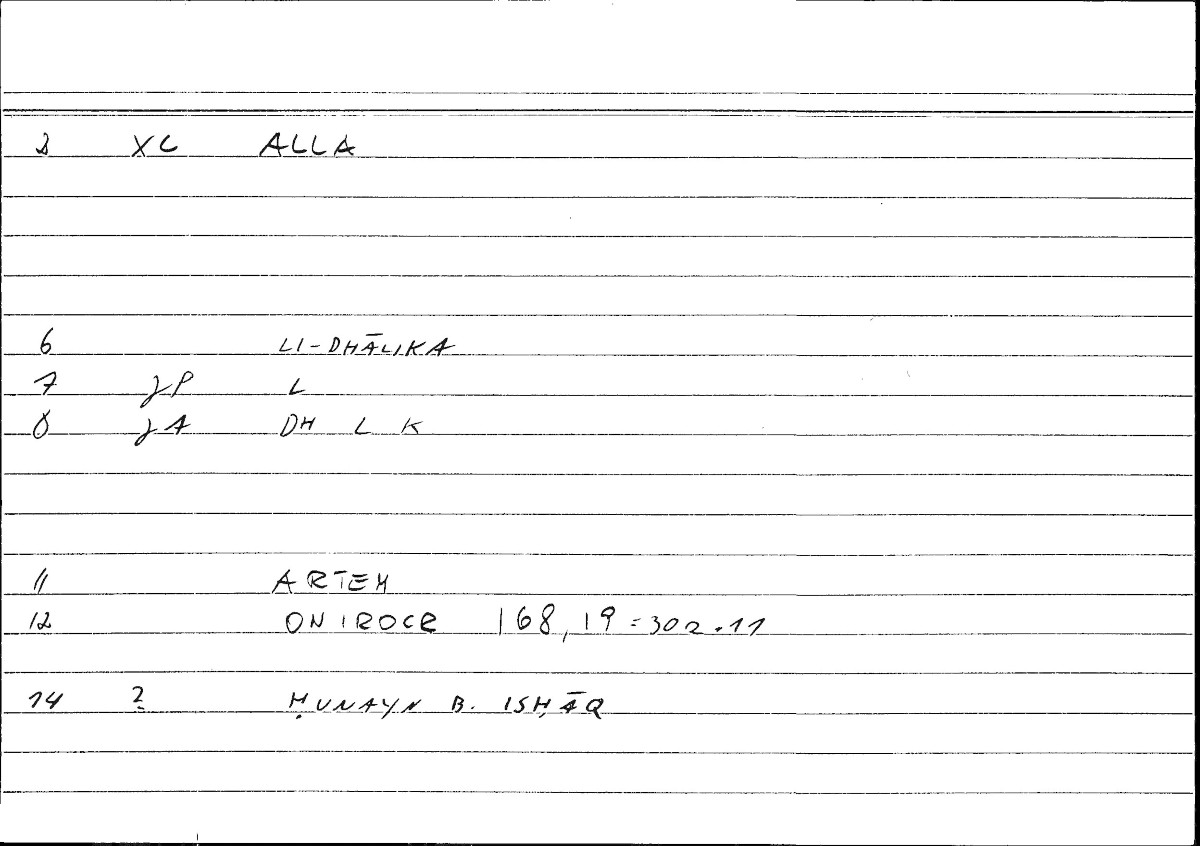 2 XL ALLA
6 LI-DHĀLIKA
7 γP L
8 γA DH L K
11 ARTEM
12 ONIROCR 168,19=302.11
14 ? ḤUNAYN B. ISḤĀQ